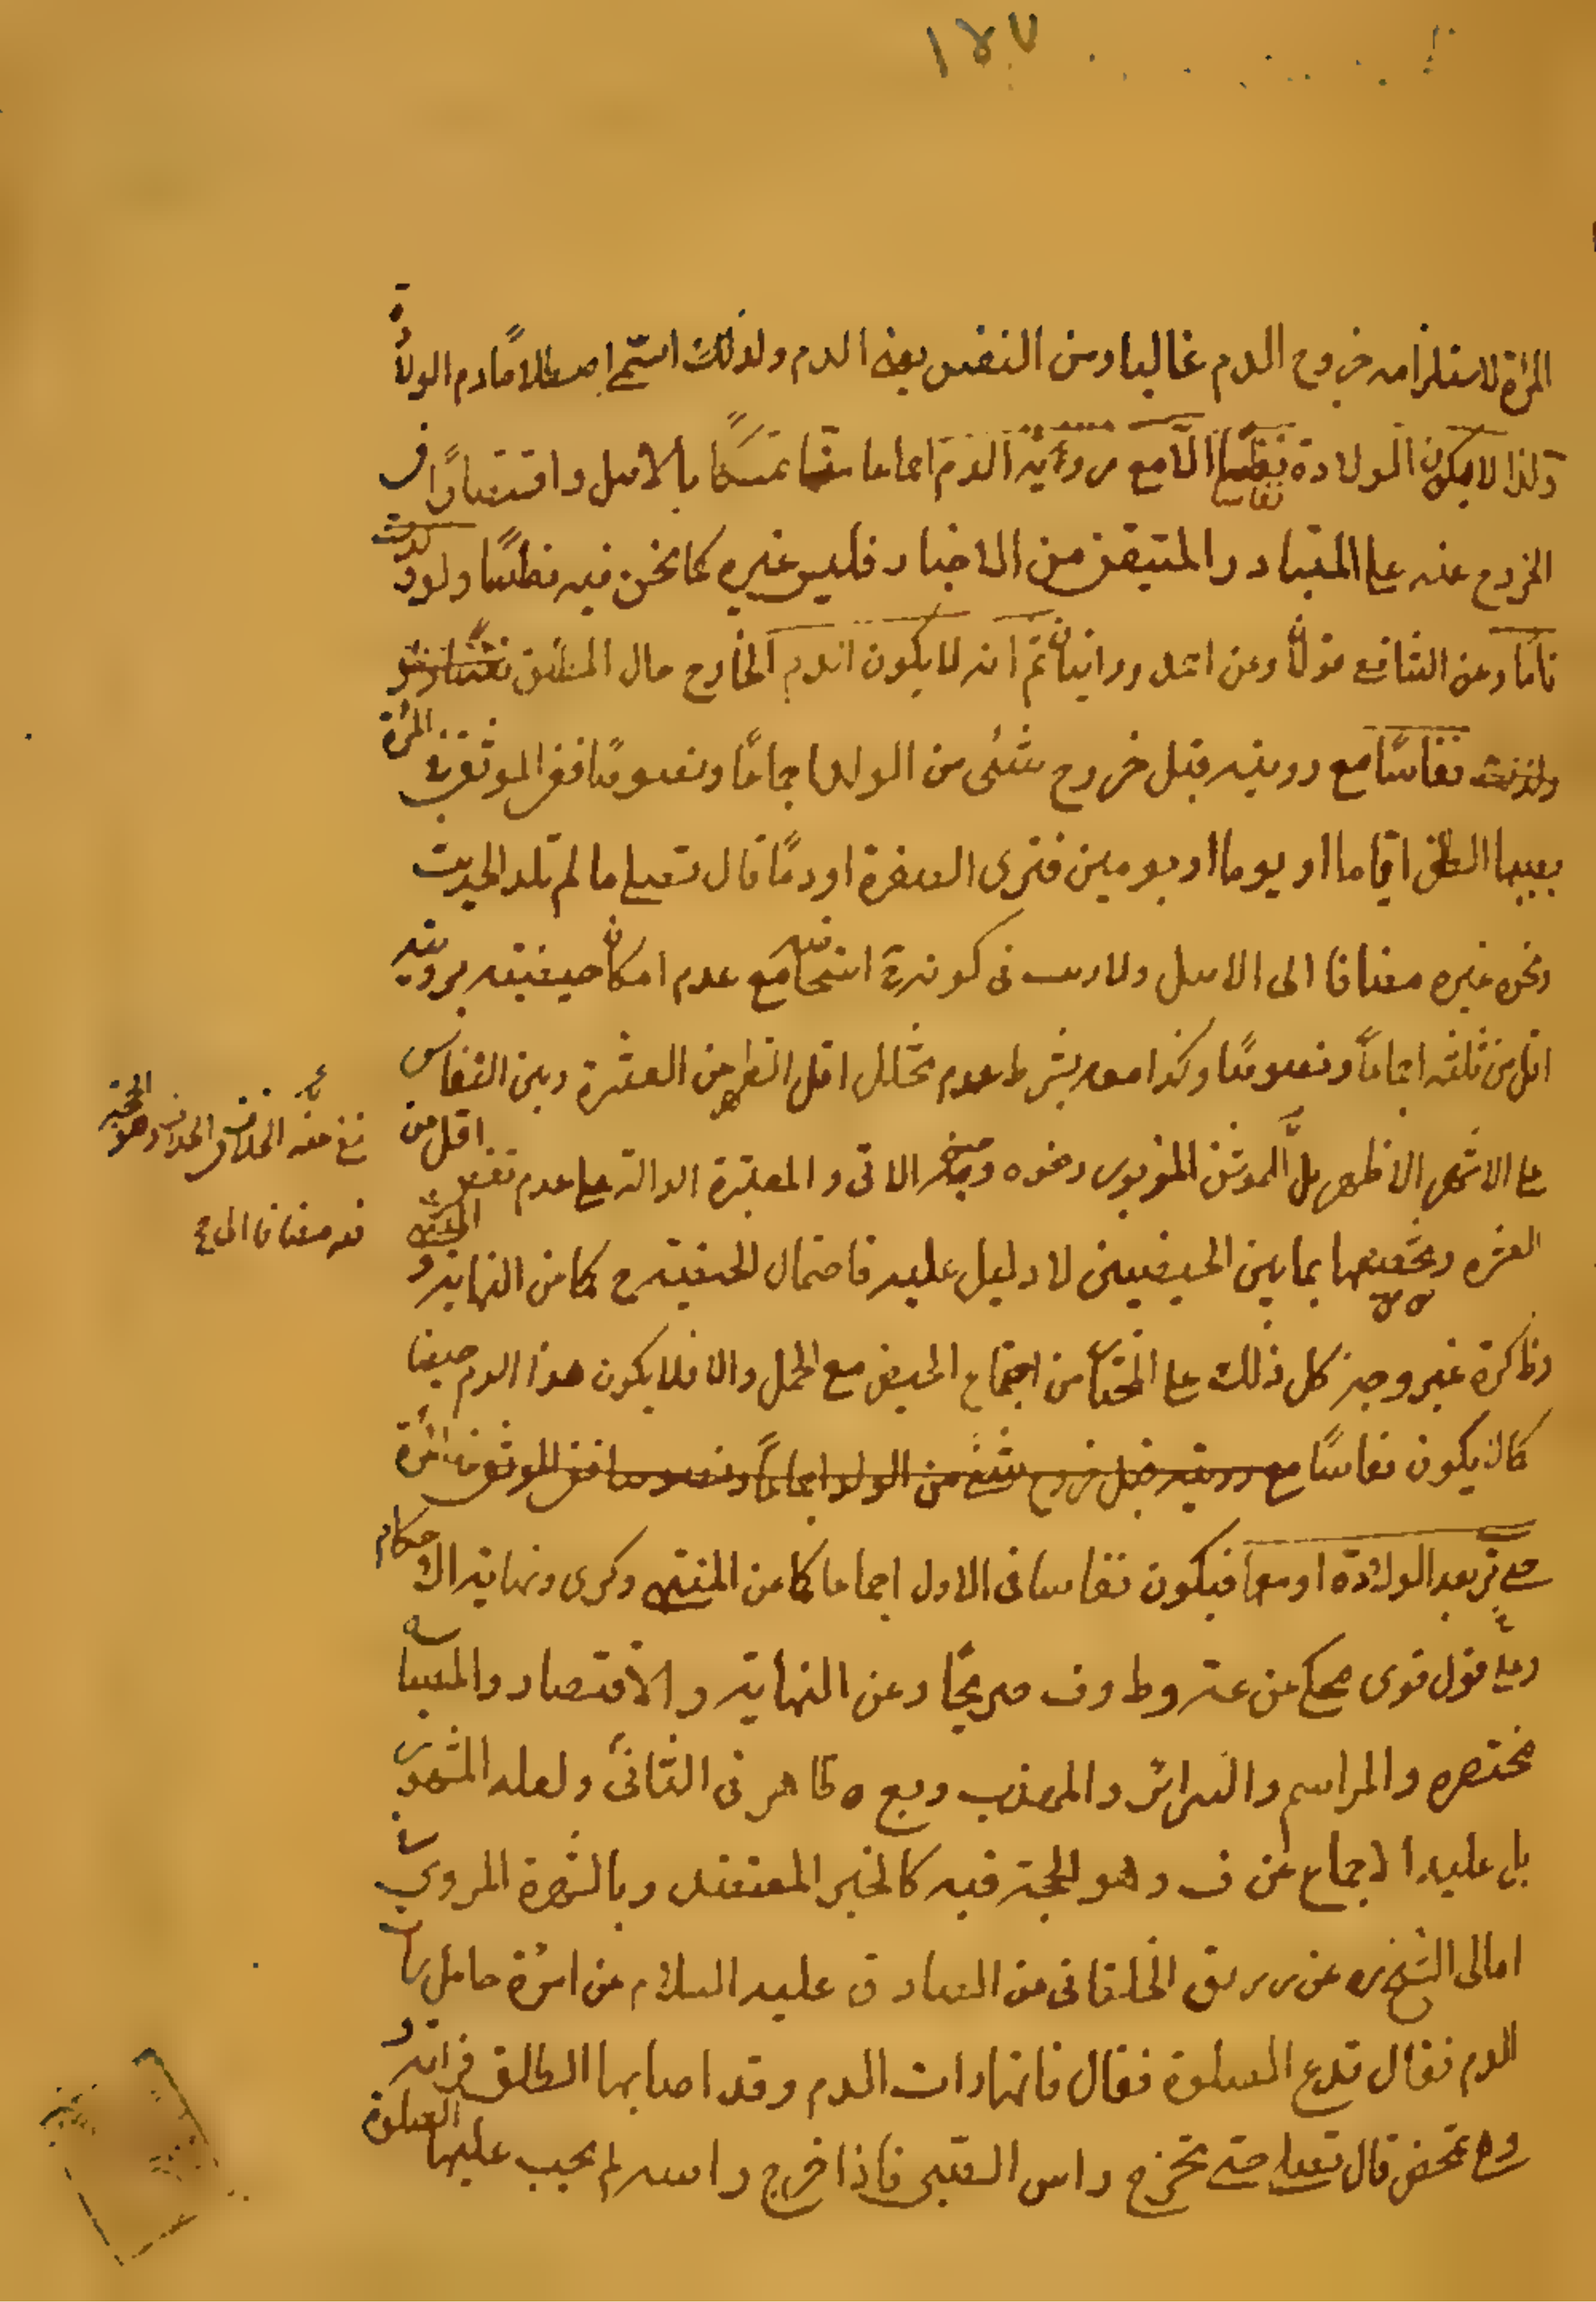 ١٨٧
المرأة لاستلزامه خروج الدم غالبا ومن النفس بمعنى الدم ولذلك استمى اصطلاحًا دم الولادة
ولذا لا يكون الولادة نفاسًا الّا مع رؤية الدم اجماعا تمسكًا بالاصل واقتصارًا في
الخروج عنه على المتبادر المتيقن من الاخبار فليس غيره كما نحن فيه نفاسًا ولو ولدت
تامًا وعن الشافعي قولان وعن احمد روايتان ثم انه لا يكون الدم الخارج حال الطلق
نفاسًا مع رؤيته قبل خروج شئ من الولد اجماعًا ونصوصًا ففي الموثق في المرأة
يصيبها الطلق اياما او يوما او يومين فترى الصفرة او دمًا قال تصلى ما لم تلد الحديث
ونحوه غيره مضافا الى الاصل ولا ريب في كونه استحاضة مع عدم امكان حيضيته برؤيته
اقل من ثلثة اجماعًا ونصوصًا وكذا معه بشرط عدم تخلل اقل الطهر من العشرة وبين النفاس
على الاشهر الاظهر بل للموثق المزبور ونحوه والمعتبرة الدالة على عدم نقص اقل من
العشرة وتخصيصها بما بين الحيضتين لا دليل عليه فاحتمال الحيضية ح كما عن النهاية و المنتهى
وظ كرة غير وجيز كل ذلك على المختار من اجتماع الحيض مع الحمل والا فلا يكون هذا الدم حيضا
كما لا يكون نفاسًا مع رؤيته قبل خروج شئ من الولد اجماعًا ونصوصا ففي الموثق في المرأة
حتى تر بعد الولادة او معها فيكون نفاسا في الاول اجماعا كما عن المنتهى وكرى ونهاية الاحكام
وعلى قول قوى محكي عن عة وط وف صريحًا وعن النهاية والاقتصاد والمصباح
مختصره والمراسم والسرائر والمهذب ويع ه ظاهر في الثاني ولعله المشهور
بل عليه الاجماع عن ف وهو الحجة فيه كالخبر المعتضد وبالشهرة المروي في
امالى الشيخ ره عن رزيق الخلقاني عن الصادق عليه السلام عن امرأة حامل رأت
الدم فقال تدع الصلوة فقال فانها رات الدم وقد اصابها الطلق فراته و
وهي تمخض قال تصلى حتى تخرج راس الصبي فاذا خرج راسه لم يجب عليها الصلوة
فيه مضافا الى